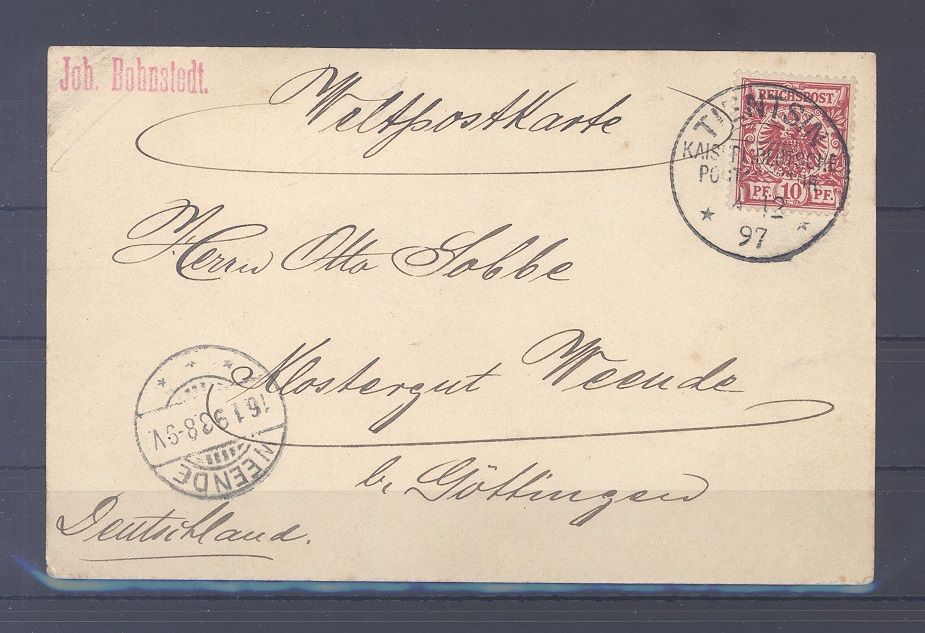 Joh. Bohnstedt.
Weltpostkarte
REICHSPOST
PF. 10 PF.
TIENTSIN
KAISERL. DEUTSCHE
12
97
Herrn Otto Sobbe
Klostergut Weende
16.1.98.8-9V.
WEENDE
b/ Göttingen
Deutschland.